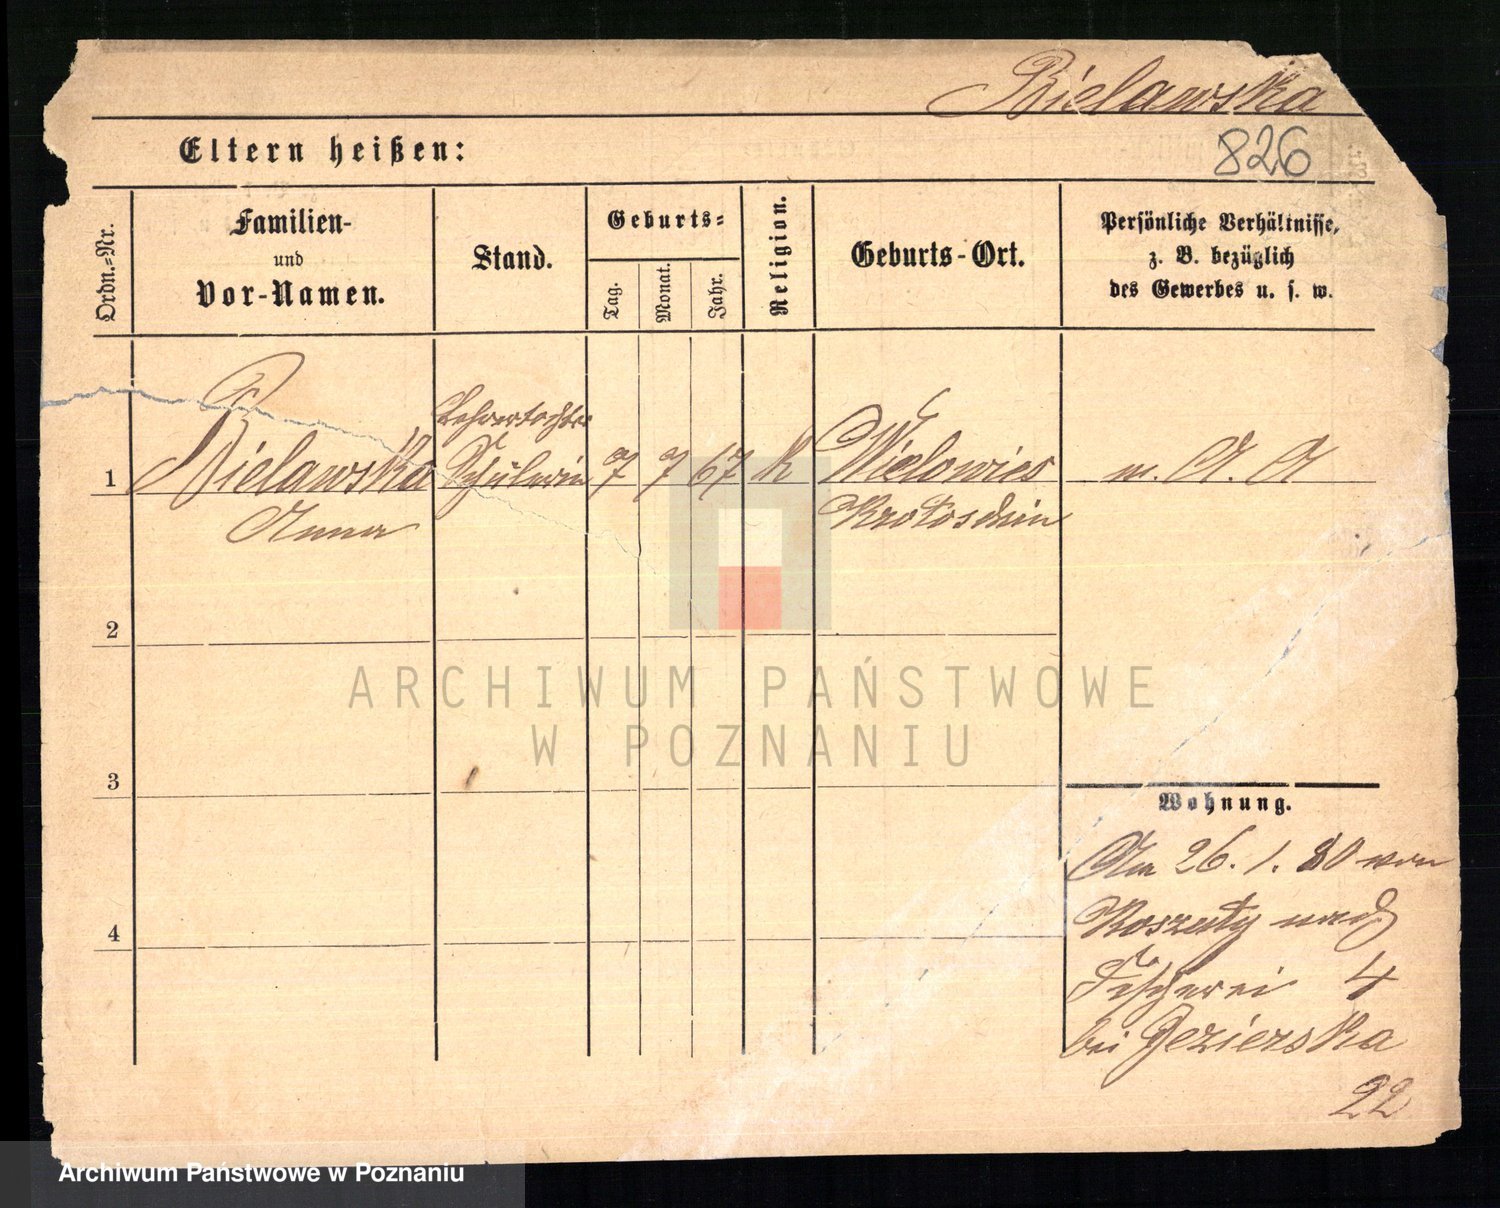 Bielawska
826
Eltern heißen:
Ordn.-Nr.
Familien-
und
Vor-Namen.
Stand.
Geburts-
Tag.
Monat.
Jahr.
Religion.
Geburts-Ort.
Persönliche Verhältnisse,
z. B. bezüglich
des Gewerbes u. s. w.
1
Bielawska
Anna
Lehrertochter
Schülerin
7
7
67
K
Wielowies
Krotoschin
m. A. A
2
3
4
Wohnung.
Am 26. 1. 80 von
Koszuty nach
Fischerei 4
bei Jezierska
22
ARCHIWUM PAŃSTWOWE
W POZNANIU
Archiwum Państwowe w Poznaniu